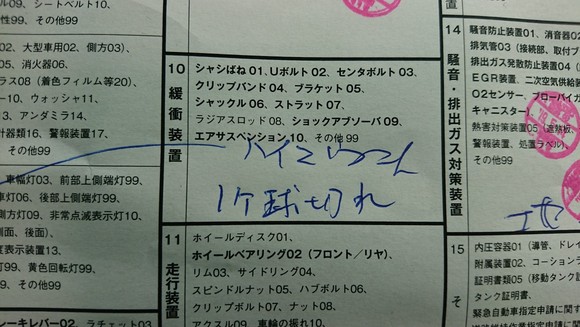 ル09、シートベルト10、
の他99
02、大型車用02、側方03)、
05、消火器06、
ラス08(着色フィルム等20)、
ー10、ウォッシャ11、
3、アンダミラ14、
計器類16、警報装置17、
その他99
車幅灯03、前部上側端灯99、
灯06、後部上側端灯99、
側方灯09、非常点滅表示灯10、
側面、後面)、
度表示装置13、
灯99、黄色回転灯99、
その他99
レーキレバー02、ラチェット03
10 緩衝装置
シャシばね01、Uボルト02、センタボルト03、
クリップバンド04、ブラケット05、
シャックル06、ストラット07、
ラジアスロッド08、ショックアブソーバ09、
エアサスペンション10、その他99
1ケ球切れ
11 走行装置
ホイールディスク01、
ホイールベアリング02(フロント/リヤ)、
リム03、サイドリング04、
スピンドルナット05、ハブボルト06、
クリップボルト07、ナット08、
アクスル09、車輪の振れ10、
14 騒音・排出ガス対策装置
騒音防止装置01、消音器02
排気管03(接続部、取付ブ
排出ガス発散防止装置04
EGR装置、二次空気供給装
O2センサ、ブローバイガ
キャニスター)、
熱害対策装置05(遮熱板、
警報装置、処置ラベル)、
その他99
15 そ
内圧容器01(導管、ドレイ
附属装置02、コーションラ
証明書類05(移動タンク
タンク証明書、
緊急自動車指定申請に関す